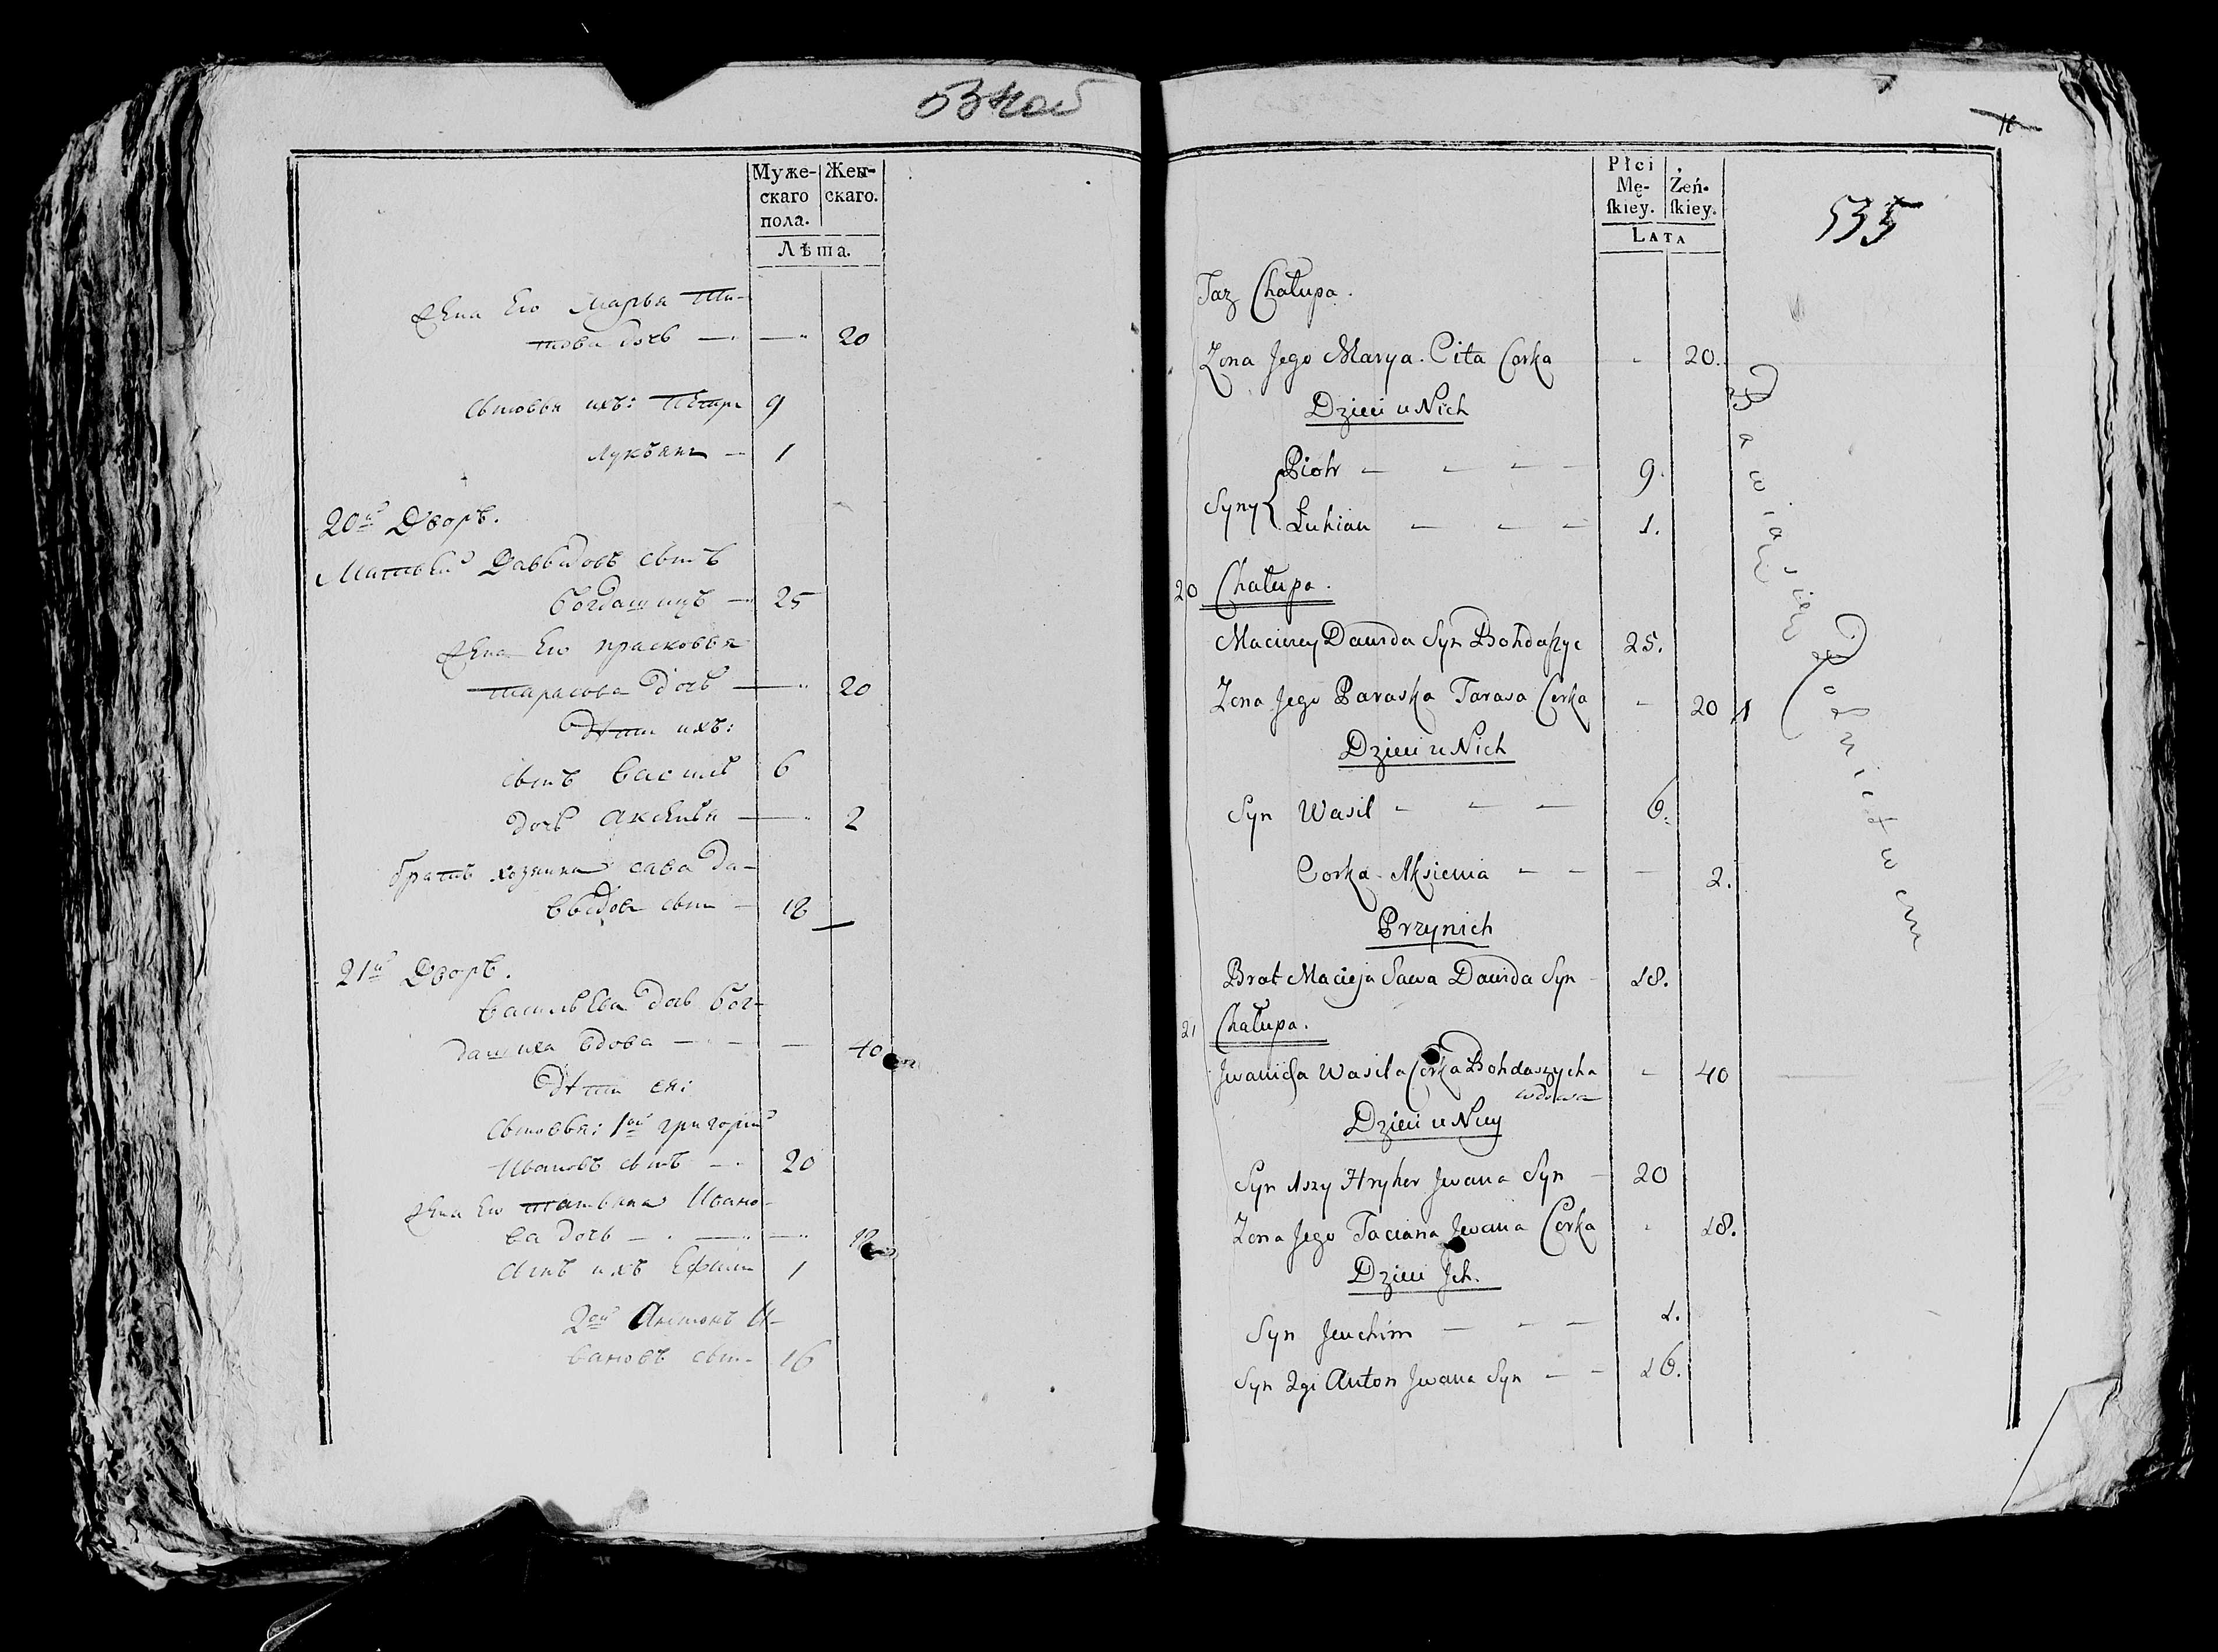 Муже-
скаго
пола.
Жен-
скаго.
Лѣта.
Жена Его Марья Ти-
това дочь — — 20
сыновья ихъ: Петръ 9
Лукьянъ — 1
20й Дворъ.
Матвей Давыдовъ сынъ
Богдашицъ — 25
Жена Его Прасковья
Тарасова дочь — 20
Дѣти ихъ:
сынъ Василь 6
дочь Аксенья — 2
братъ хозяина Сава Да-
выдовъ сынъ — 18
21й Дворъ.
Васильева дочь Бог-
дашиха вдова — — — 40
Дѣти ея:
сыновья: 1ой Григорий
Ивановъ сынъ — 20
Жена Его Татьяна Ивано-
ва дочь — — — 18
сынъ ихъ Ефимъ 1
2ой Антонъ И-
вановъ сынъ 16
Płci
Mę-
ſkiey.
Żeń-
ſkiey.
LATA
535
Taz Chałupa.
Zona Jego Marya Cita Corka - 20.
Dzieci u Nich
Syny { Piotr — — — — 9.
Łukian — — — 1.
20 Chałupa.
Maciey Dawida Syn Bohdaszyc 25.
Zona Jego Paraska Tarasa Corka - 20
Dzieci u Nich
Syn Wasil — — — 6.
Corka Aksienia — — — 2.
Przynich
Brat Macieja Sawa Dawida Syn 18.
21 Chałupa.
Jwanicha Wasila Corka Bohdaszycha - 40
wdowa
Dzieci u Niey
Syn 1szy Hryhor Jwana Syn — 20
Zona Jego Taciana Jwana Corka - 18.
Dzieci Jch.
Syn Jeuchim — — — 1.
Syn 2gi Anton Jwana Syn — — 16.
Bawiący się Rolnictwem